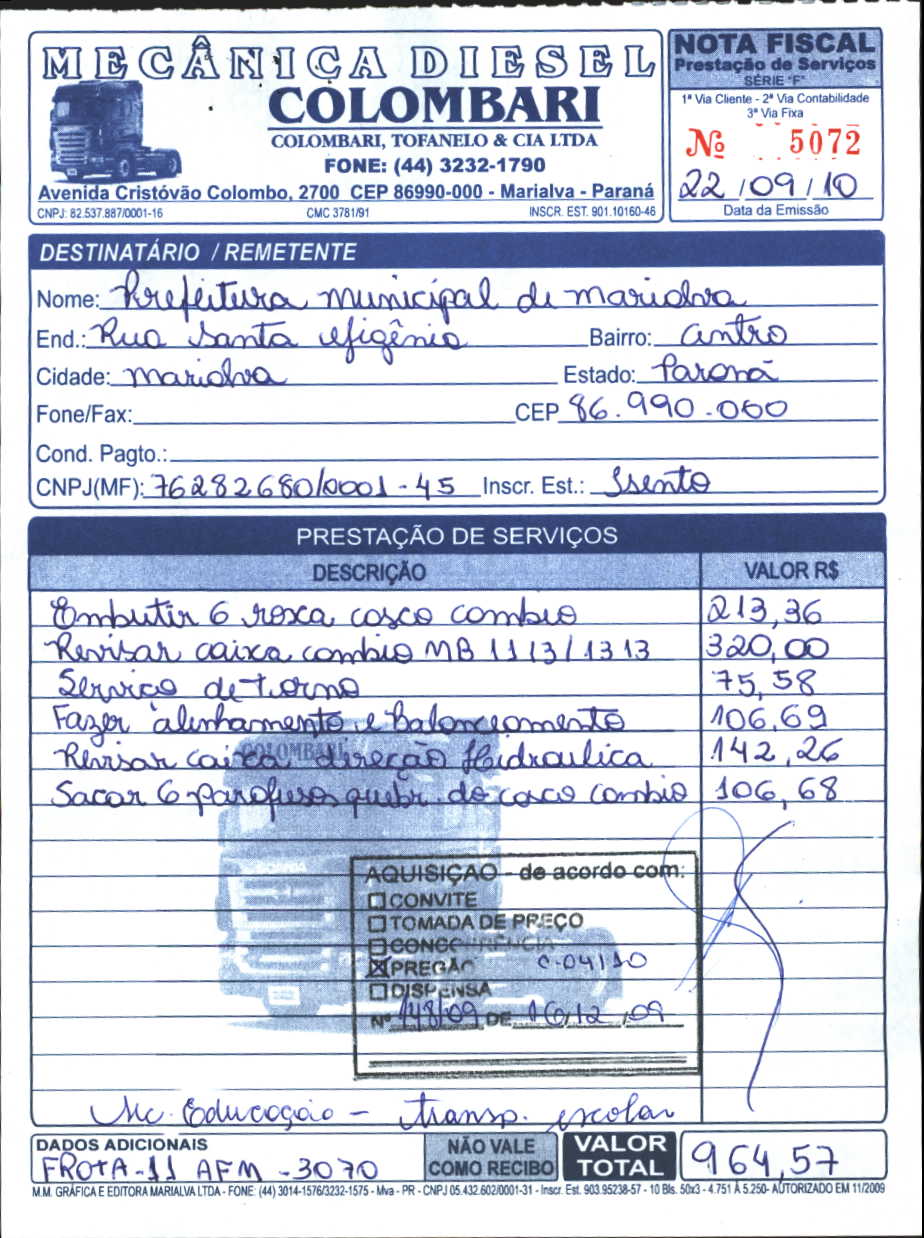 MECÂNICA DIESEL
COLOMBARI
COLOMBARI, TOFANELO & CIA LTDA
FONE: (44) 3232-1790
Avenida Cristóvão Colombo, 2700 CEP 86990-000 - Marialva - Paraná
CNPJ: 82.537.887/0001-16 CMC 3781/91 INSCR. EST. 901.10160-46
NOTA FISCAL
Prestação de Serviços
SÉRIE "F"
1ª Via Cliente - 2ª Via Contabilidade
3ª Via Fixa
Nº 5072
22/09/10
Data da Emissão
DESTINATÁRIO / REMETENTE
Nome: Prefeitura municipal de marialva
End.: Rua Santa efigênia Bairro: centro
Cidade: marialva Estado: Paraná
Fone/Fax: CEP 86.990.000
Cond. Pagto.:
CNPJ(MF): 76282680/0001-45 Inscr. Est.: Isento
PRESTAÇÃO DE SERVIÇOS
DESCRIÇÃO VALOR R$
Embutir 6 rosca casco cambio 213,36
Revisar caixa cambio MB 1113/1313 320,00
Serviço de torno 75,58
Fazer alinhamento e Balanceamento 106,69
Revisar caixa direção Hidraulica 142,26
Sacar 6 parafusos quebr. do casco cambio 106,68
COLOMBARI
AQUISIÇÃO - de acordo com:
CONVITE
TOMADA DE PREÇO
CONCORRÊNCIA
PREGÃO C-04/10
DISPENSA
Nº 148/09 DE 16/12/09
Mc. Educação - transp. escolar
DADOS ADICIONAIS
FROTA-11 AFM-3070
NÃO VALE
COMO RECIBO
VALOR
TOTAL
964,57
M.M. GRÁFICA E EDITORA MARIALVA LTDA - FONE: (44) 3014-1576/3232-1575 - Mva - PR - CNPJ 05.432.602/0001-31 - Inscr. Est. 903.95238-57 - 10 Bls. 50x3 - 4.751 À 5.250- AUTORIZADO EM 11/2009